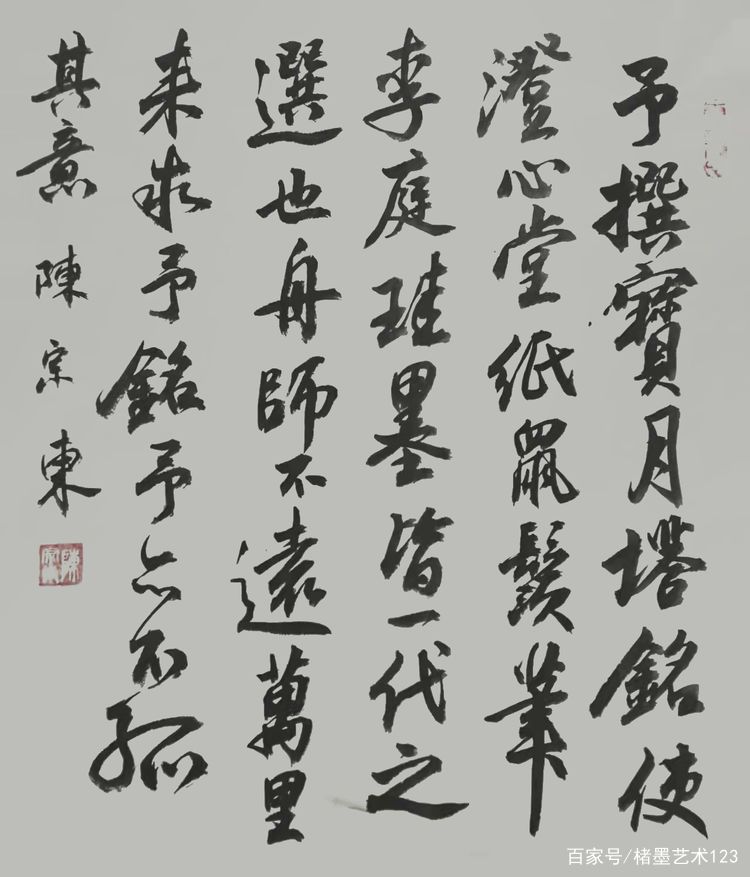 予撰寶月塔銘使
澄心堂紙鼠鬚筆
李庭珪墨皆一代之
選也舟師不遠萬里
来求予銘予亦不孤
其意
陳宗東
百家号/楮墨艺术123